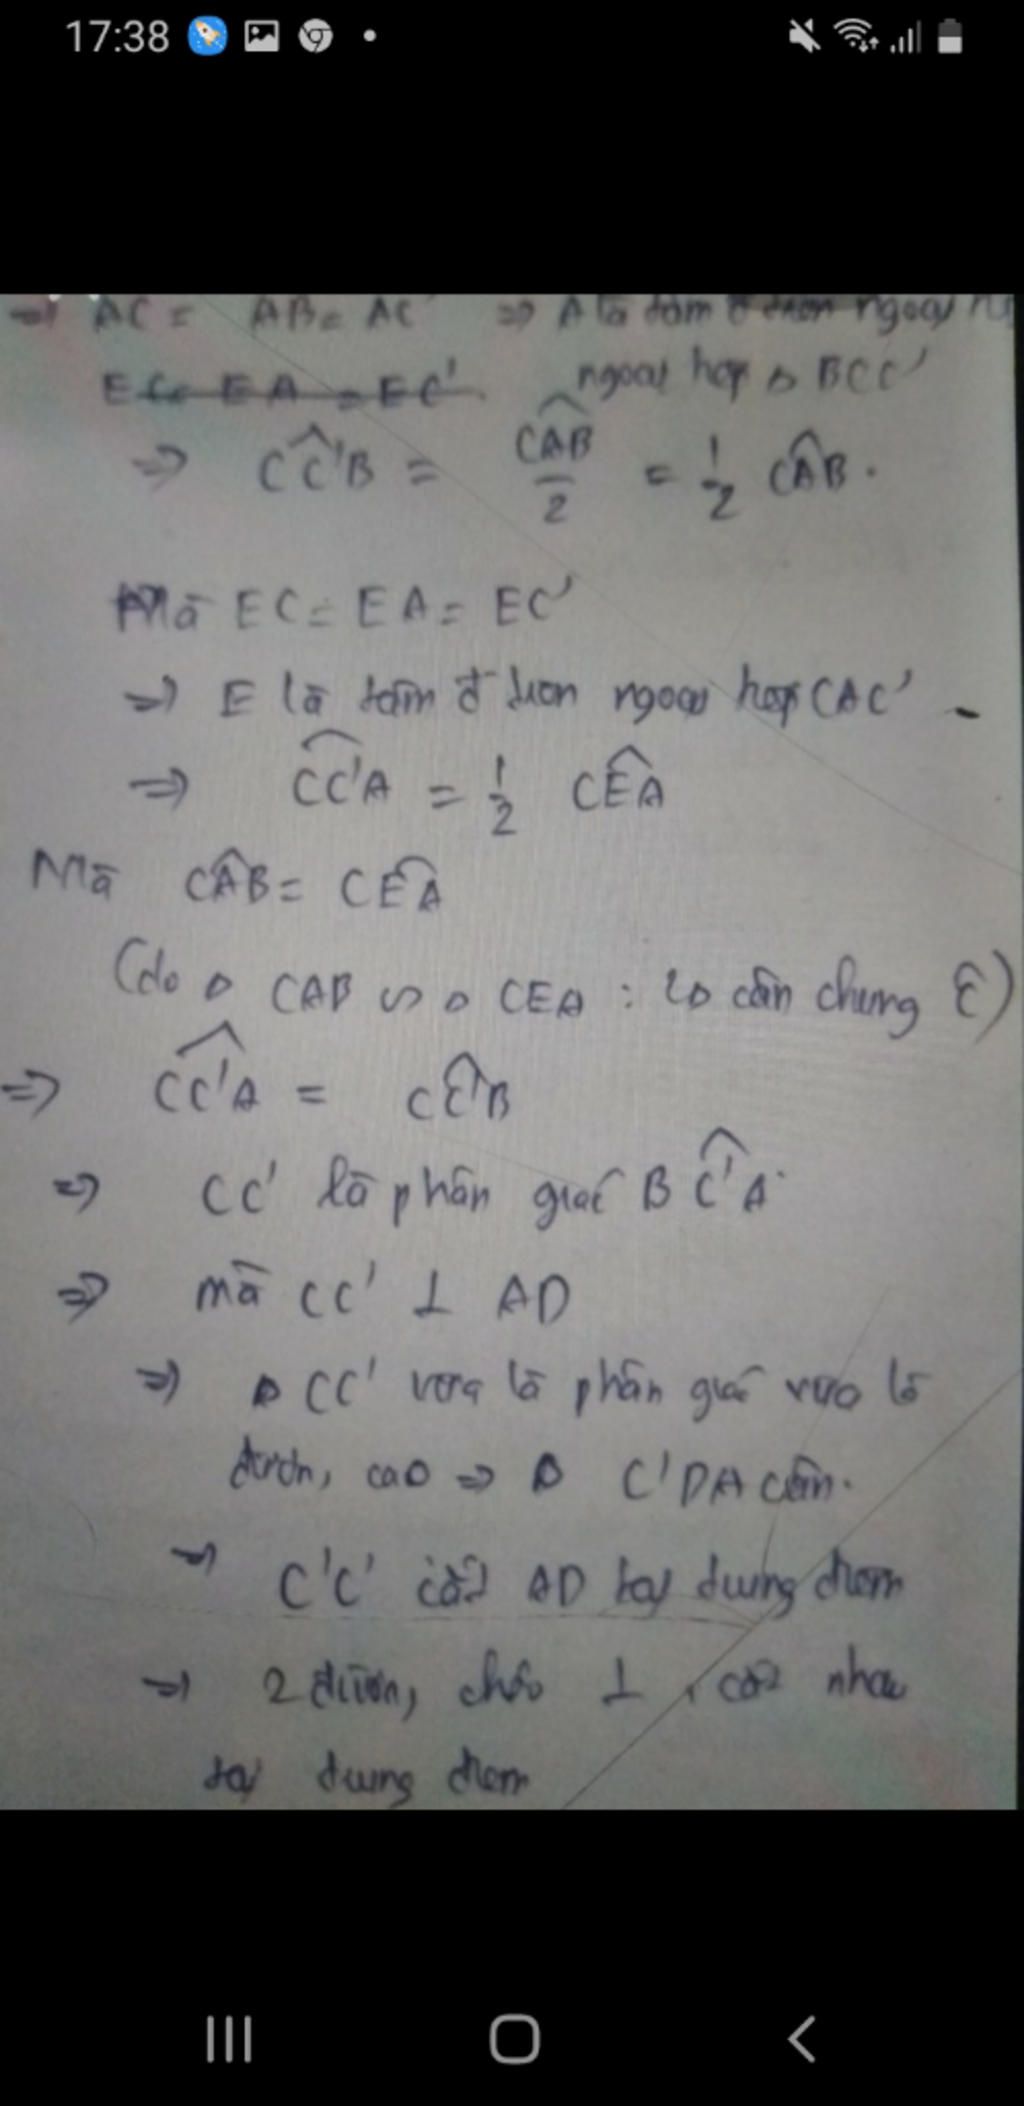 17:38
=> AC = AB = AC' => A là tâm đ tròn ngoại
EC = EA = EC' ngoại hợp Δ BCC'
=> CC'B = CAB/2 = 1/2 CAB.
Mà EC = EA = EC'
=> E là tâm đ tròn ngoại hợp CAC'
=> CC'A = 1/2 CEA
Mà CAB = CEA
(do Δ CAB ∽ Δ CEA : 2Δ cân chung C)
=> CC'A = CC'B
=> CC' là phân giác BC'A
=> mà CC' ⊥ AD
=> Δ CC' vừa là phân giác vừa là
đườn, cao => Δ C'DA cân.
=> C'C' cắt AD tại dung điểm
=> 2 đườn, chéo ⊥, cắt nhau
tại dung điểm